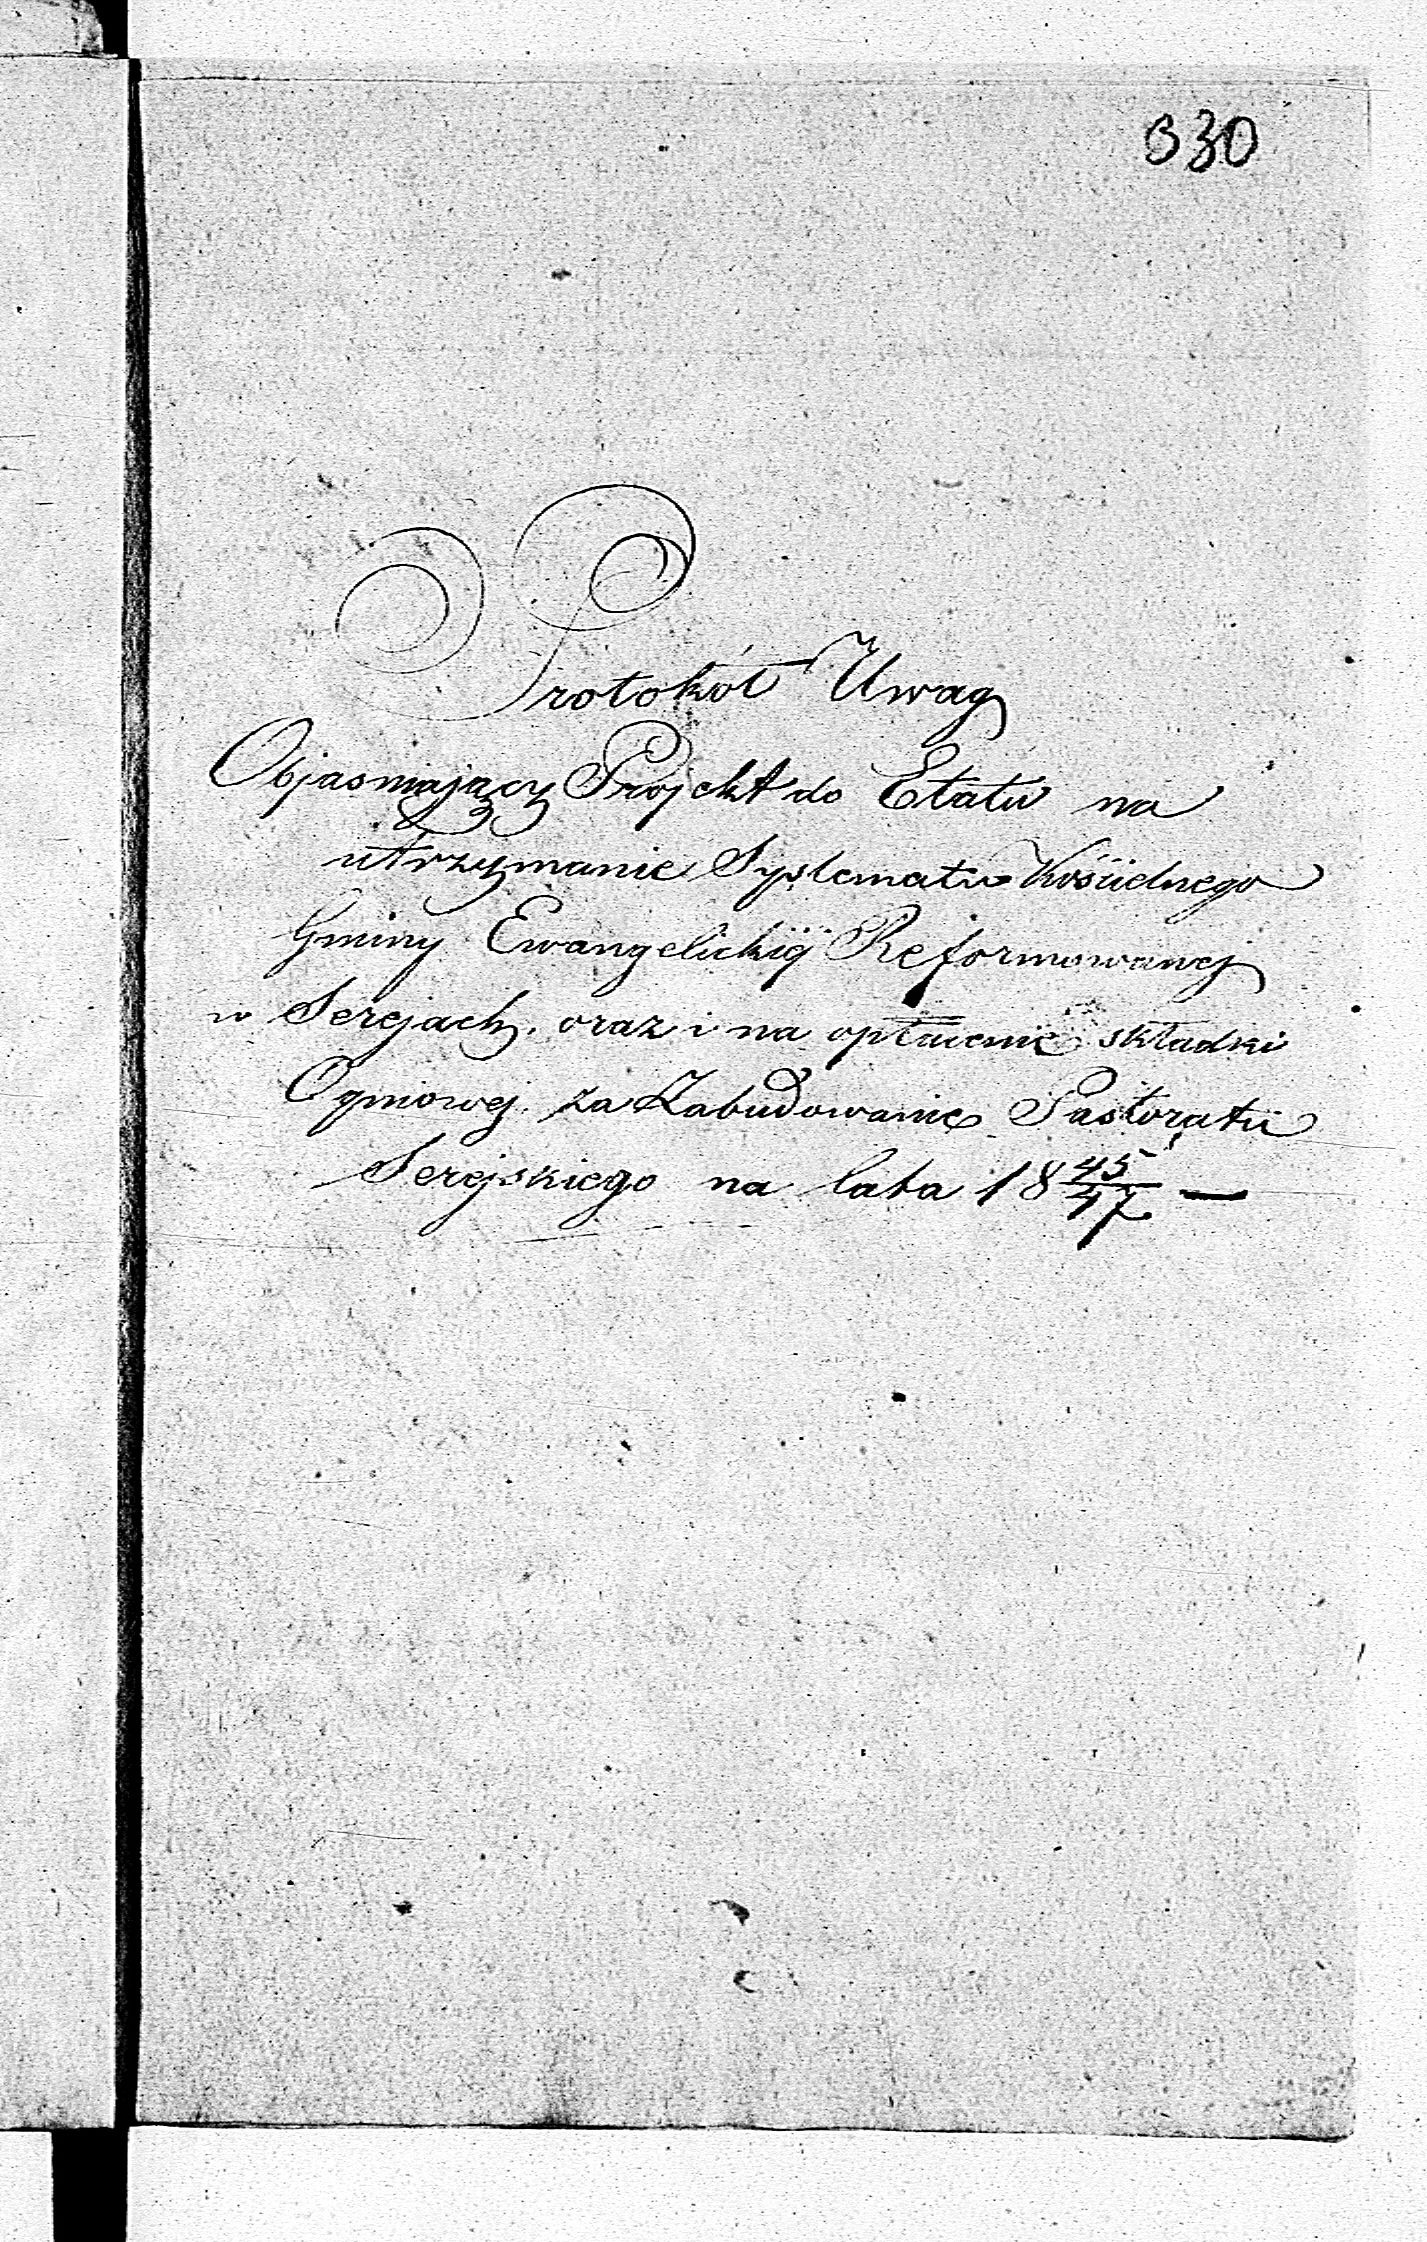 330
Protokół Uwag
Objasniający Projekt do Etatu na
utrzymanie Systematu Kościelnego
Gminy Ewangelickiej Reformowanej
w Serejach, oraz i na opłacenie składki
Ogniowej za Zabudowanie Pastoratu
Serejskiego na lata 18 45/47 —